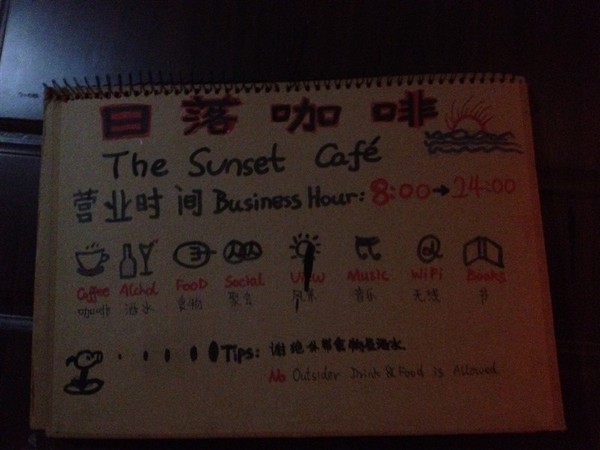 日落咖啡
The Sunset Café
营业时间 Business Hour: 8:00→24:00
Coffee Alcohol Food Social View Music WiFi Books
咖啡 酒水 食物 聚会 风景 音乐 无线 书
Tips: 谢绝外带食物及酒水
No Outsider Drink & Food is Allowed